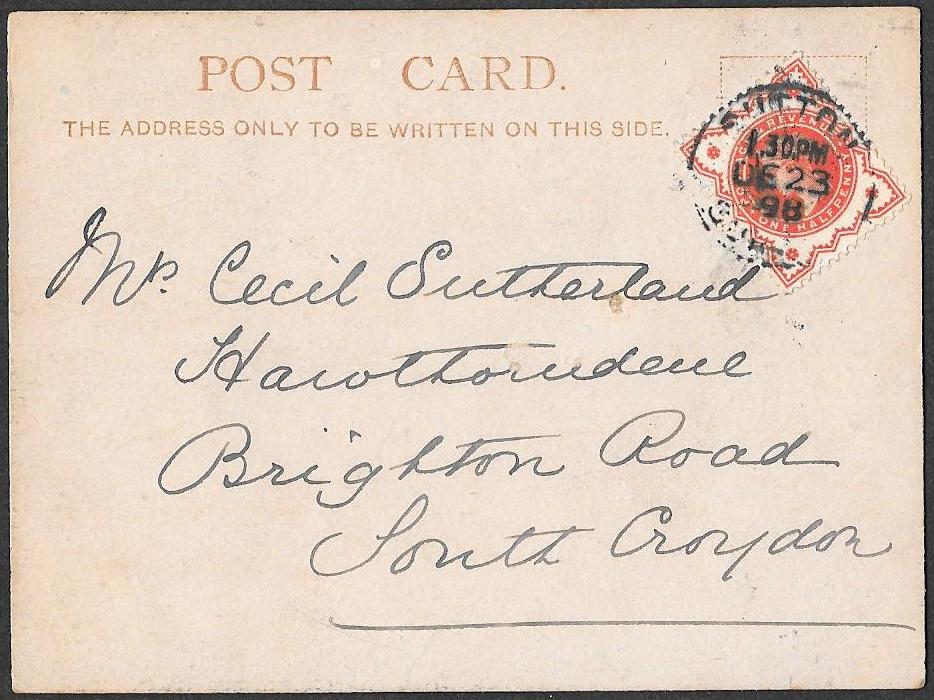 POST CARD.
THE ADDRESS ONLY TO BE WRITTEN ON THIS SIDE.
SUTTON
1.30.PM
DE 23
98
REVENUE
ONE HALFPENNY
Mr. Cecil Sutherland
Hawthorndene
Brighton Road
South Croydon